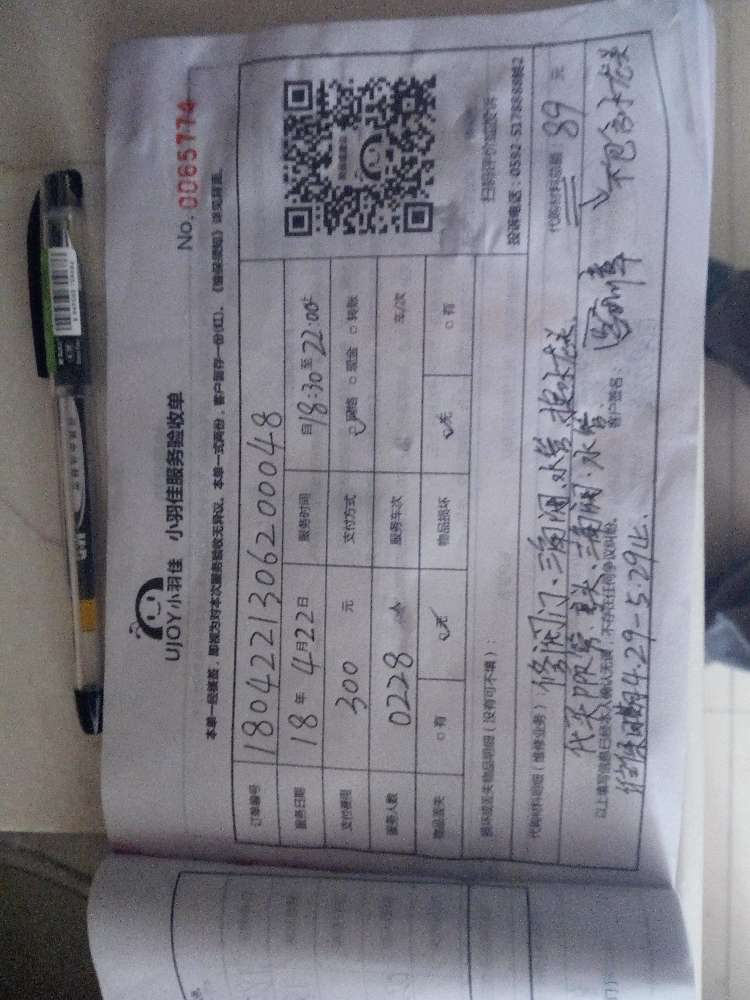 No. 0065774
UJOY小羽佳 小羽佳服务验收单
本单一经接签，即视为对本次服务验收无异议。本单一式两份，客户留存一份(红)。《售保须知》详见背面。
订单编号 180422130620048
服务日期 18年4月22日 服务时间 自18:30至22:00止
支付费用 300 元 支付方式 网络 □ 现金 □ 转账
服务人数 0228 人 服务车次 元/次
物品丢失 □ 有 无 物品损坏 无 □ 有
损坏或丢失物品明细（没有可不填）：
扫码评价或投诉
投诉电话：0592-5178888转2
代购材料明细（维修业务） 修阀门、三角阀、水管、换水龙头
代购材料总额：89 元
不包含水龙头
以上填写信息已经本人确认无误，不存在任何争议纠纷。
客户签名：
维保日期4.29-5.29止.